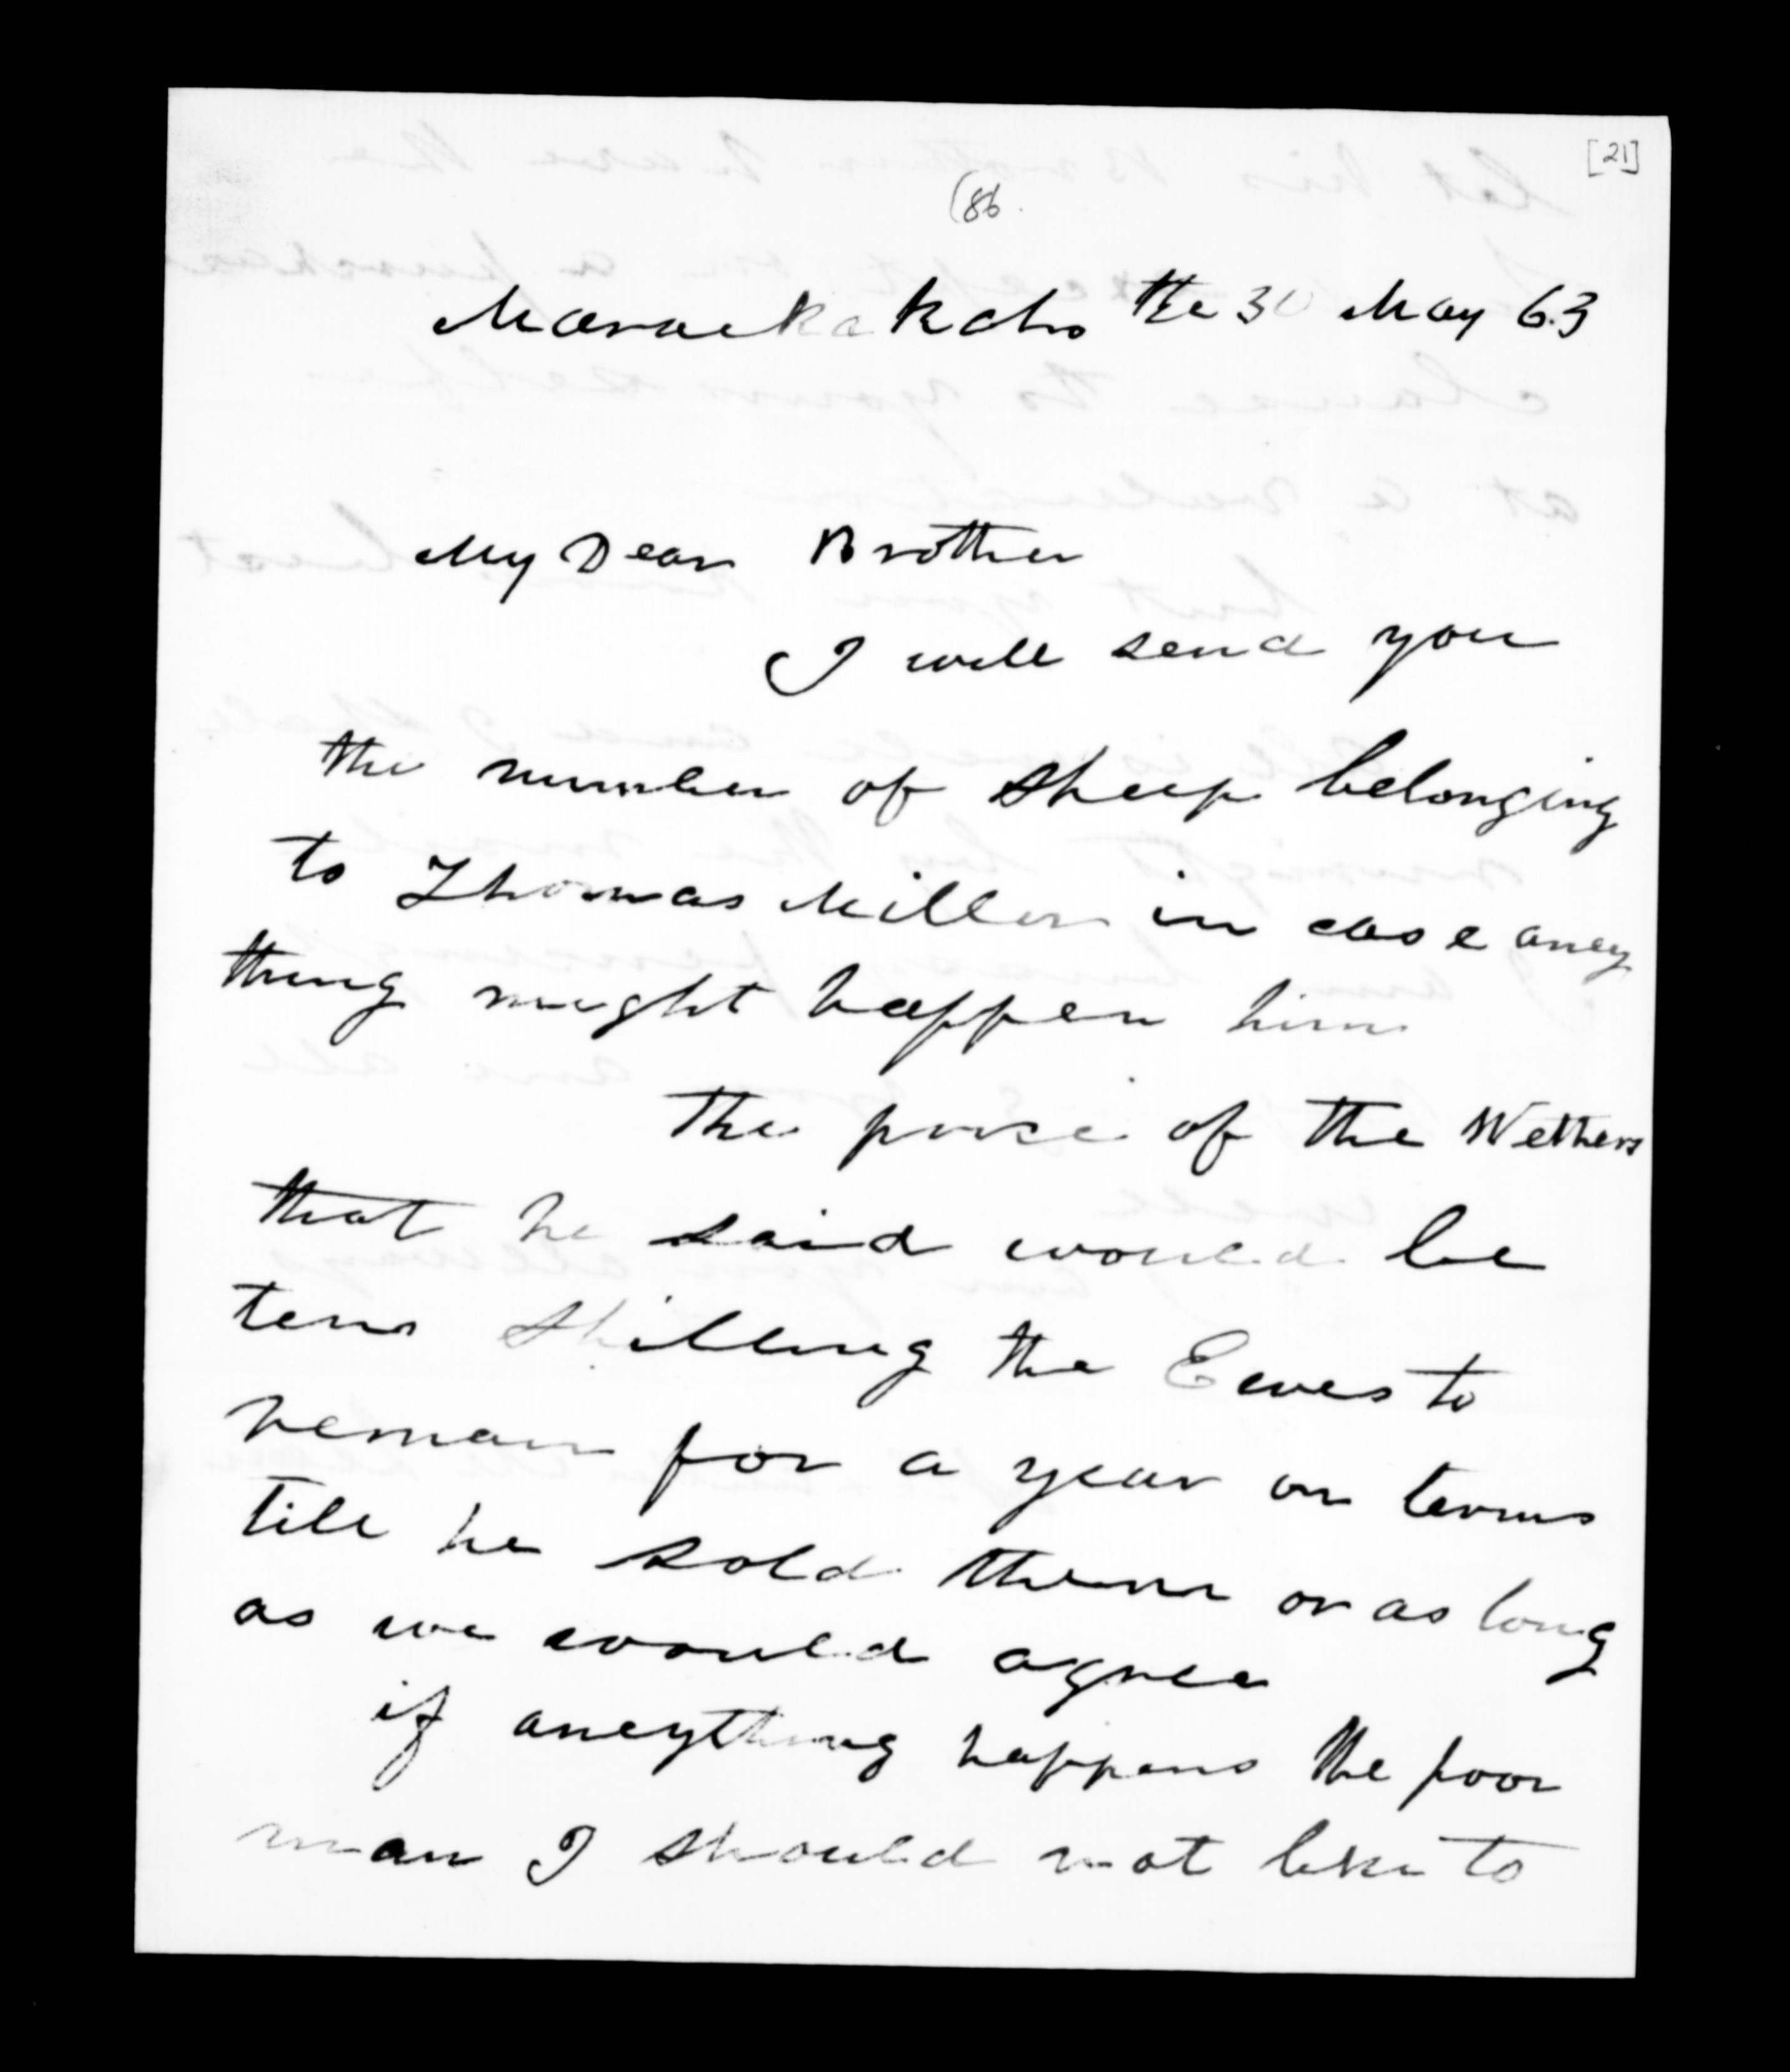 [21]
(86.
Maraekakaho the 30 May 63
My Dear Brother
I will send you
the number of sheep belonging
to Thomas Miller in case aney
thing might happen him
The price of the Wethers
that he said would be
tenn shilling the Eewes to
remain for a year on terms
till he sold them or as long
as we would agree
if aneything happens the poor
man I should not like to